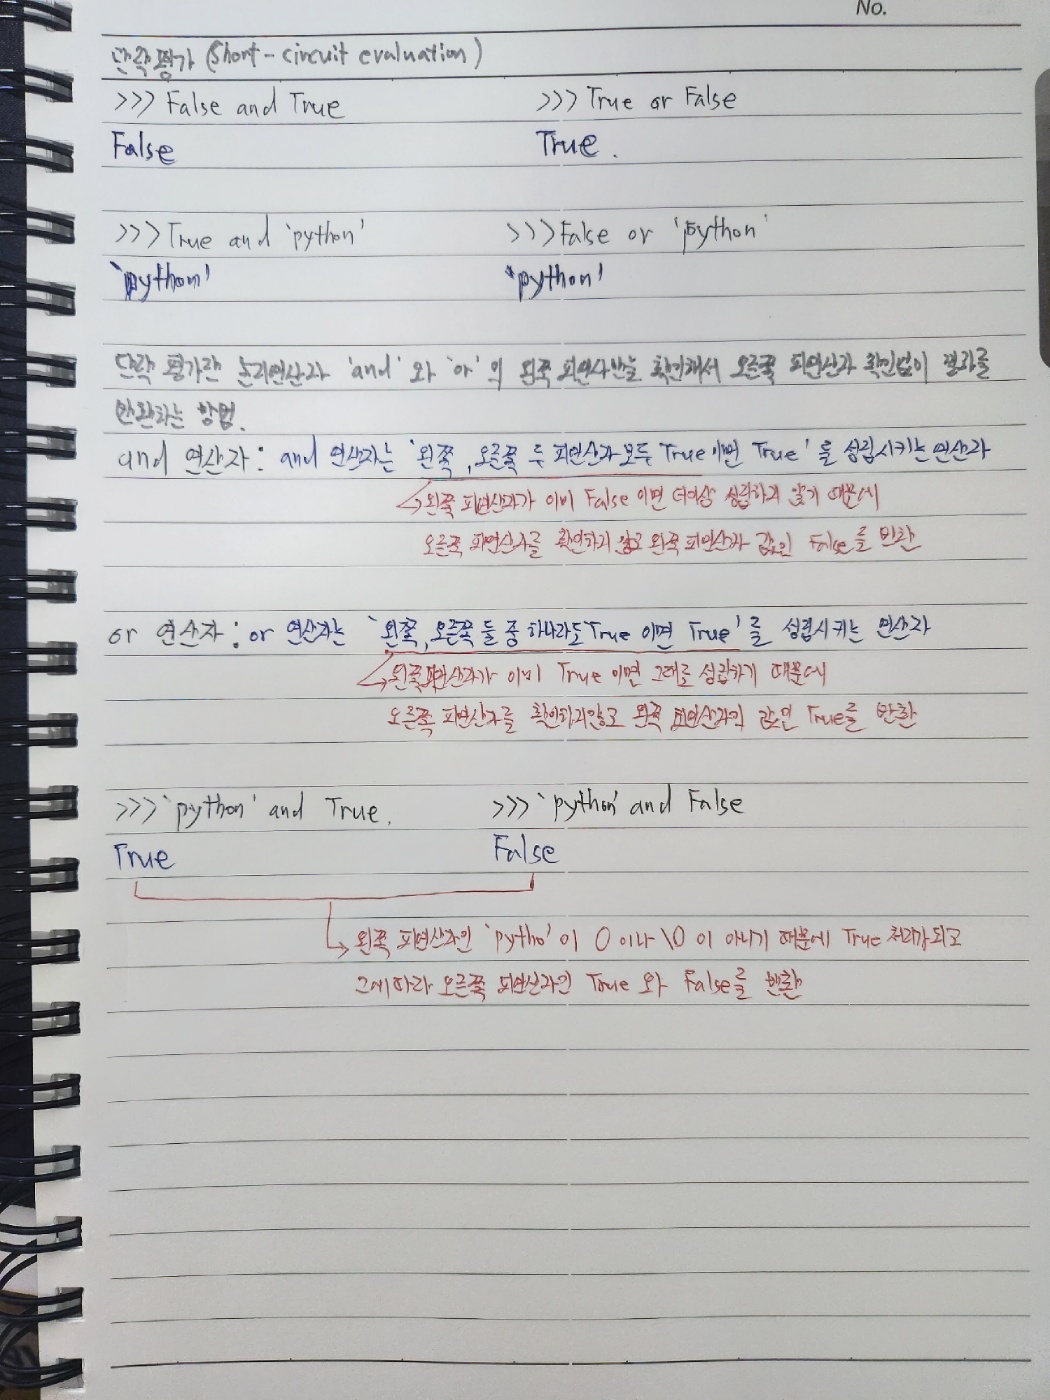 No.
단락 평가 (Short-circuit evaluation)
>>> False and True >>> True or False
False True.
>>> True and 'python' >>> False or 'python'
'python' 'python'
단락 평가란 논리연산자 'and' 와 'or' 의 왼쪽 피연산자만을 확인해서 오른쪽 피연산자 확인없이 결과를
반환하는 방법.
and 연산자 : and 연산자는 '왼쪽, 오른쪽 두 피연산자 모두 True 이면 True' 를 성립시키는 연산자
왼쪽 피연산자가 이미 False 이면 더이상 성립하지 않기 때문에
오른쪽 피연산자를 확인하지 않고 왼쪽 피연산자 값인 False를 반환
or 연산자 : or 연산자는 '왼쪽, 오른쪽 둘 중 하나라도 True 이면 True' 를 성립시키는 연산자
왼쪽피연산자가 이미 True 이면 그대로 성립하기 때문에
오른쪽 피연산자를 확인하지않고 왼쪽 피연산자의 값인 True를 반환
>>> 'python' and True. >>> 'python' and False
True False
왼쪽 피연산자인 'pytho' 이 0 이나 \0 이 아니기 때문에 True 처리가되고
그에따라 오른쪽 피연산자인 True 와 False를 반환